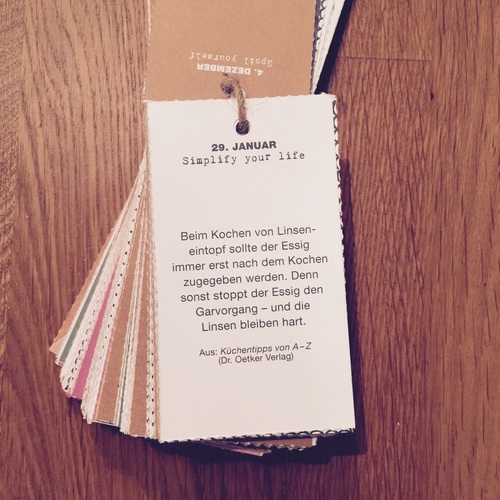 4. DEZEMBER
Spoil yourself
29. JANUAR
Simplify your life
Beim Kochen von Linsen-
eintopf sollte der Essig
immer erst nach dem Kochen
zugegeben werden. Denn
sonst stoppt der Essig den
Garvorgang – und die
Linsen bleiben hart.
Aus: Küchentipps von A–Z
(Dr. Oetker Verlag)